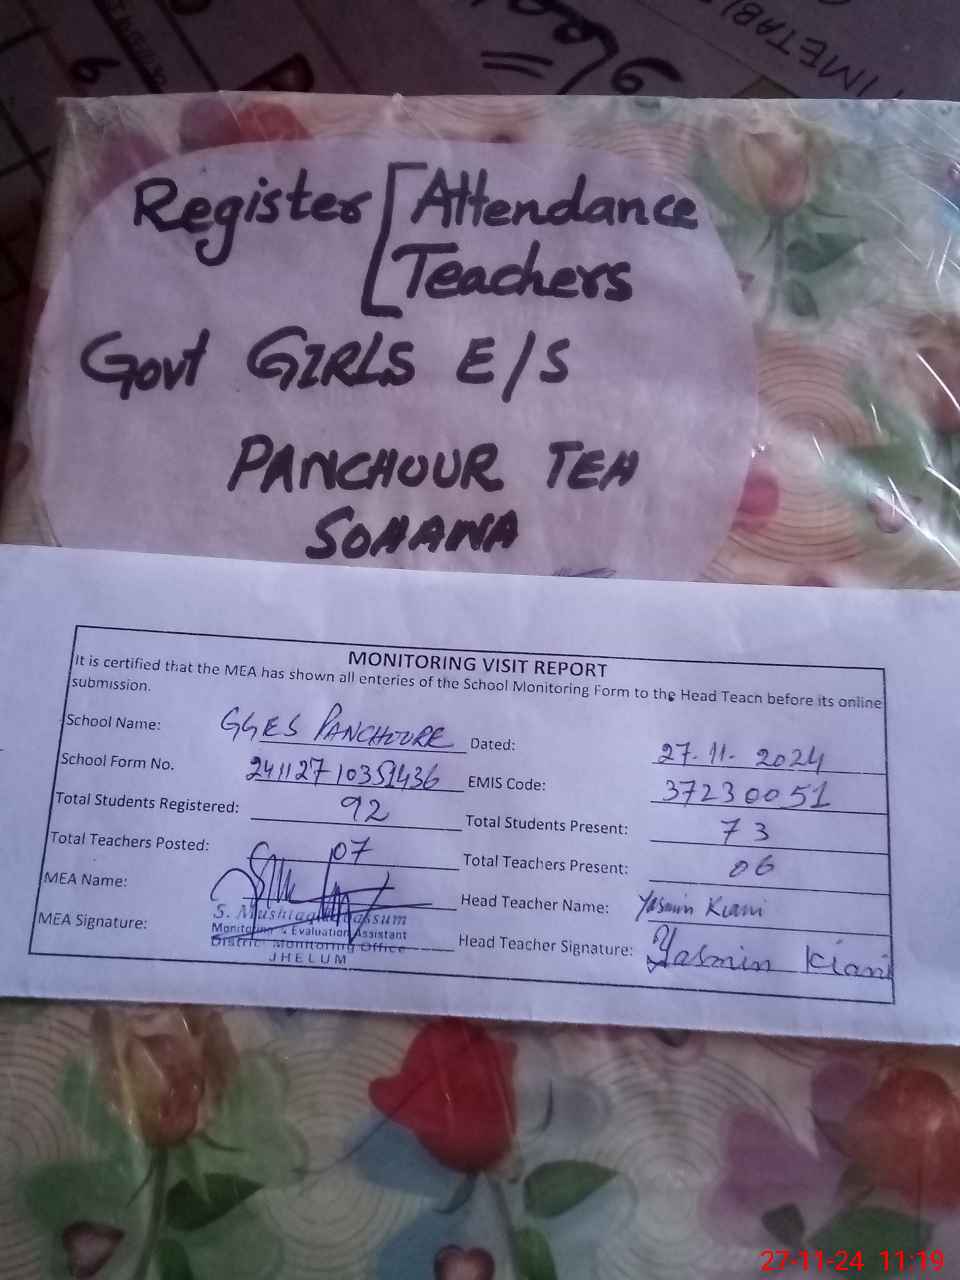 TIMETAB
6
Register [ Attendance
Teachers
Govt GIRLS E/S
PANCHOUR TEH
SOHAWA
MONITORING VISIT REPORT
It is certified that the MEA has shown all enteries of the School Monitoring Form to the Head Teach before its online
submission.
School Name: GGES PANCHOURE Dated: 27-11-2024
School Form No. 24112710351436 EMIS Code: 37230051
Total Students Registered: 92 Total Students Present: 73
Total Teachers Posted: 07 Total Teachers Present: 06
MEA Name: Head Teacher Name: Yasmin Kiani
S. Mushtaq
Monitoring & Evaluation Assistant
MEA Signature: District Monitoring Office Head Teacher Signature: Yasmin Kiani
JHELUM
27-11-24 11:19